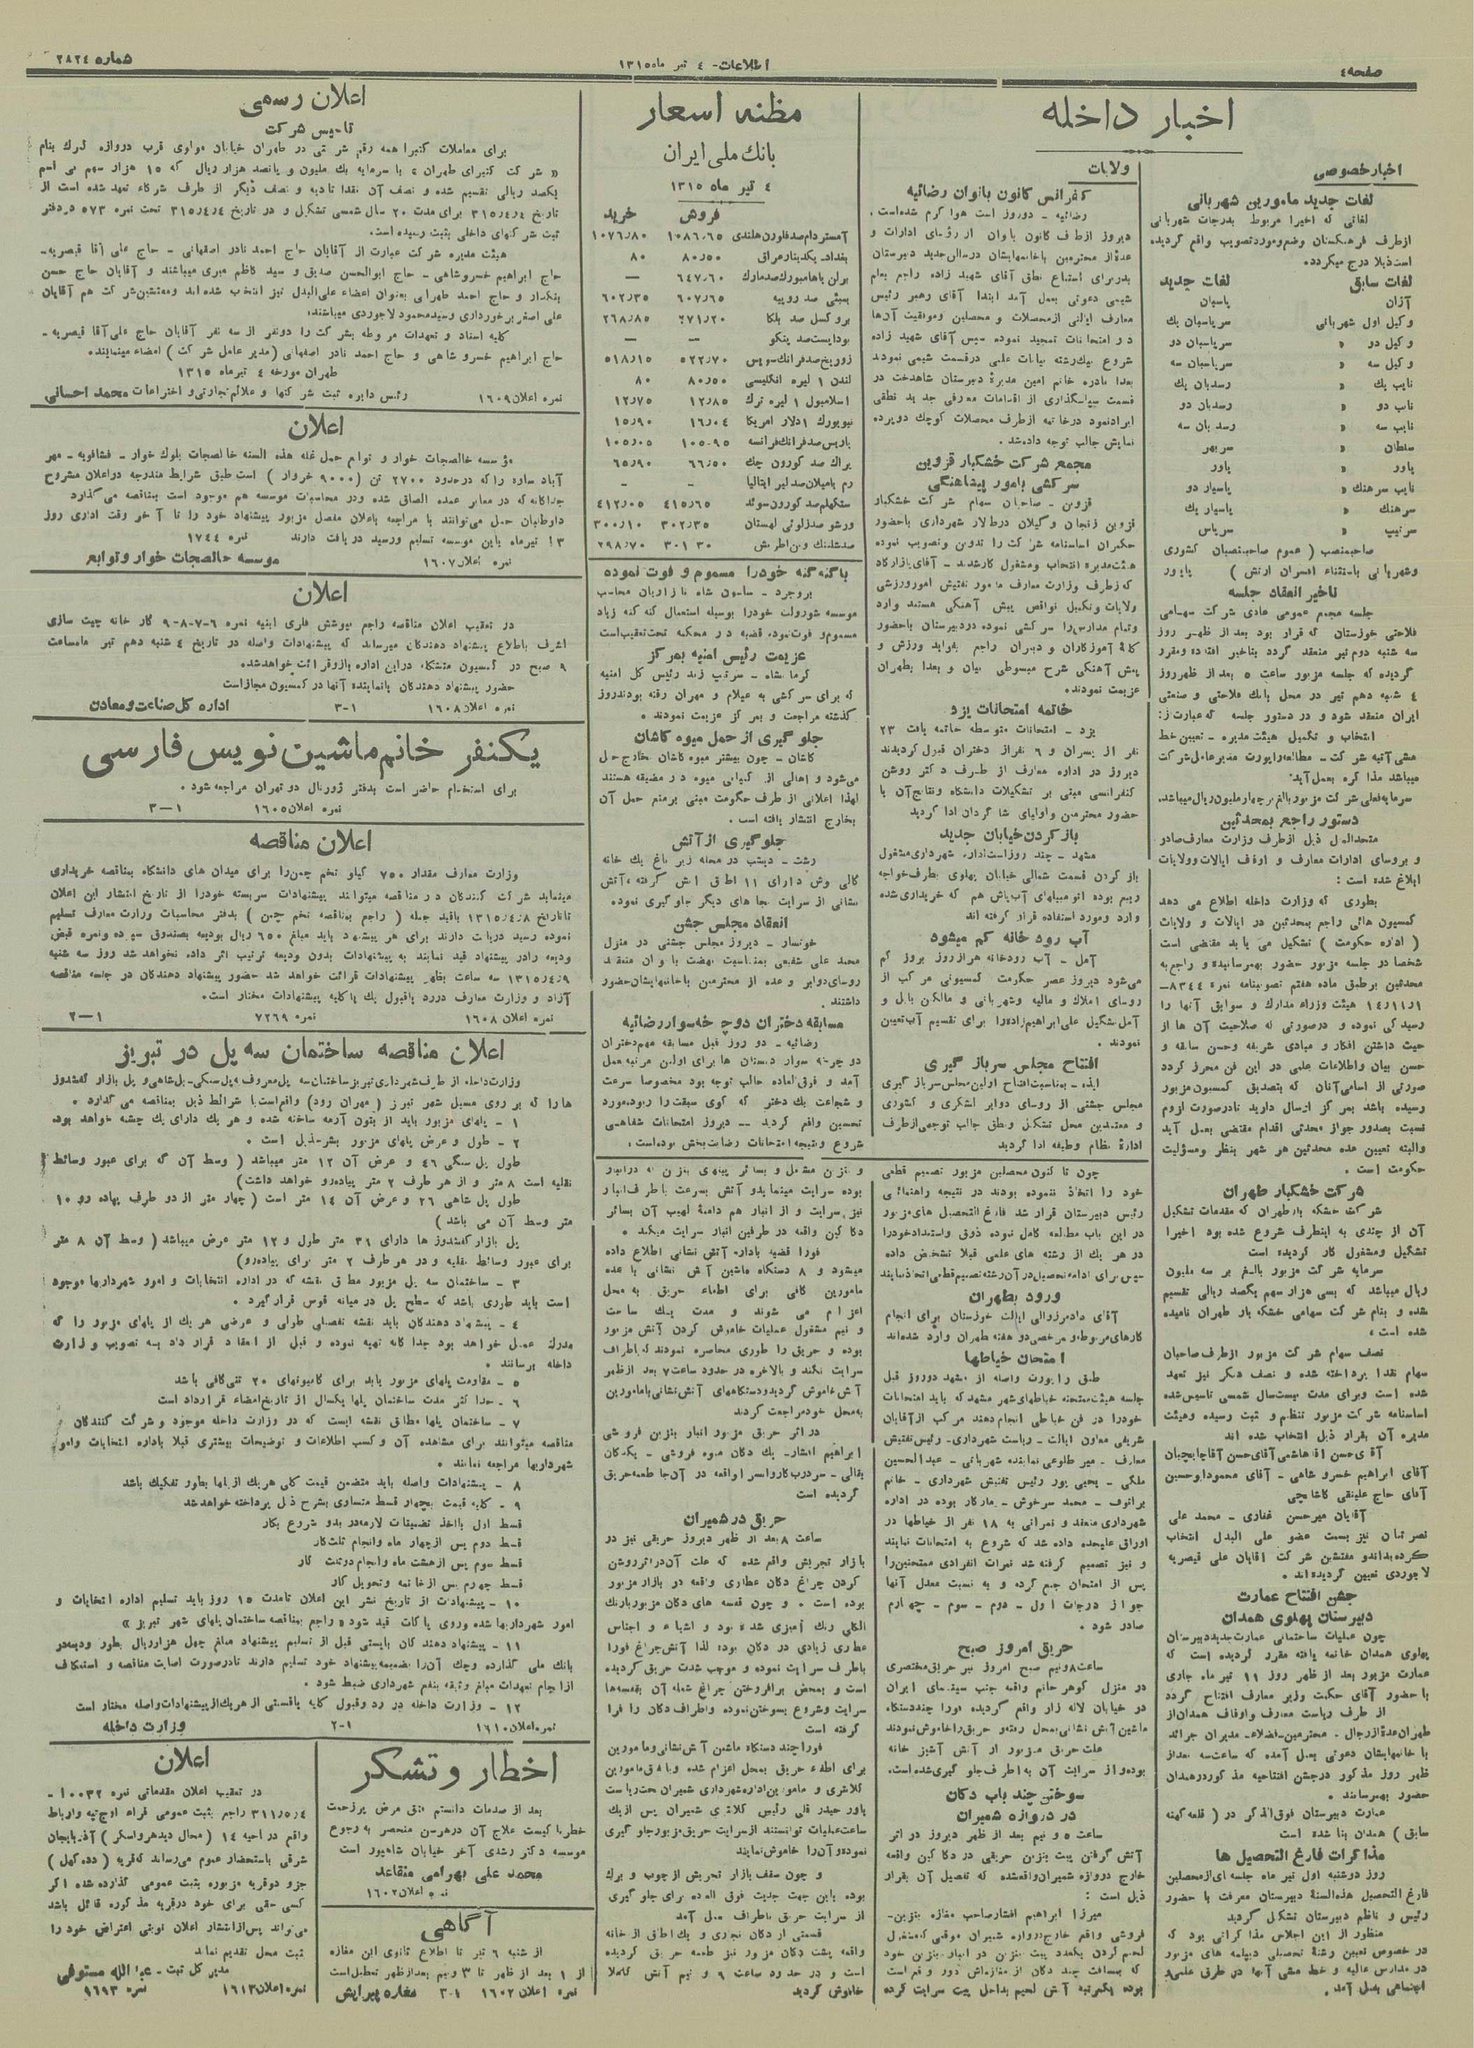 صفحه٤
اطلاعات - ٤ تیر ماه ۱۳۱۵
شماره ۲۸۲٤
اخبار داخله
اخبار خصوصی
لغات جدید مامورین شهربانی
لغاتی که اخیرا مربوط بدرجات شهربانی
ازطرف فرهنگستان وضع و مورد تصویب واقع گردیده
است ذیلا درج میگردد.
لغات سابق لغات جدید
آژان پاسبان
وکیل اول شهربانی سرپاسبان یك
وکیل دو « سرپاسبان دو
وکیل سه « سرپاسبان سه
نایب یك « رسدبان یك
نایب دو « رسدبان دو
نایب سه « رسدبان سه
سلطان « سربهر
یاور « پاور
نایب سرهنك « پاسیار دو
سرهنك « پاسیار یك
سرتیپ « سرپاس
صاحبمنصب ( عموم صاحبمنصبان کشوری
وشهربانی باستثناء افسران ارتش ) پایور
تاخیر انعقاد جلسه
جلسه مجمع عمومی عادی شرکت سهامی
فلاحتی خوزستان که قرار بود بعد از ظهر روز
سه شنبه دوم تیر منعقد گردد بتاخیر افتاده و مقرر
گردیده که جلسه مزبور ساعت ٥ بعد از ظهر روز
٤ شنبه دهم تیر در محل بانك فلاحتی و صنعتی
ایران منعقد شود و در دستور جلسه که عبارت از:
انتخاب و تکمیل هیئت مدیره - تعیین خط
مشی آتیه شرکت - مطالعه راپورت مدیرعامل شرکت
میباشد مذاکره بعمل آید.
سرمایه فعلی شرکت مزبور بالغ بر چهار ملیون ریال میباشد.
دستور راجع بمحدثین
متحدالمال ذیل ازطرف وزارت معارف صادر
و بروسای ادارات معارف و اوقاف ایالات و ولایات
ابلاغ شده است :
بطوری که وزارت داخله اطلاع می دهد
کمسیون هائی راجع بمحدثین در ایالات و ولایات
( اداره حکومت ) تشکیل می یابد مقتضی است
شخصا در جلسه مزبور حضور بهمرسانیده و راجع به
محدثین برطبق ماده هفتم تصویبنامه نمره ۸۳٤٤-
۱٤/۱۱/۱ هیئت وزراء مدارك و سوابق آنها را
رسیدگی نموده و درصورتی که صلاحیت آن ها از
حیث داشتن افکار و مبادی شریفه وحسن سابقه و
حسن بیان واطلاعات علمی در این فن محرز گردد
صورتی از اسامی آنان که بتصدیق کمسیون مزبور
رسیده باشد بمرکز ارسال دارید تادرصورت لزوم
نسبت بصدور جواز محدثی اقدام مقتضی بعمل آید
والبته تعیین عده محدثین هر شهر بنظر ومسؤلیت
حکومت است .
شرکت خشکبار طهران
شرکت خشکه بار طهران که مقدمات تشکیل
آن از چندی به اینطرف شروع شده بود اخیرا
تشکیل ومشغول کار گردیده است
سرمایه شرکت مزبور بالغ بر سه ملیون
ریال میباشد که بسی هزار سهم یکصد ریالی تقسیم
شده و بنام شرکت سهامی خشکه بار طهران نامیده
شده است .
نصف سهام شرکت مزبور ازطرف صاحبان
سهام نقدا پرداخته شده و نصف دیگر نیز تعهد
شده است وبرای مدت بیست سال شمسی تاسیس شده
اساسنامه شرکت مزبور تنظیم و ثبت رسیده وهیئت
مدیره آن بقرار ذیل انتخاب شده اند
آقای حسن آقاهاشمی آقای حسن آقاچایچیان
آقای ابراهیم خسرو شاهی - آقای محمود ابوحسین
آقای حاج علینقی کاشانچی
آقایان میرحسن غفاری - محمد علی
نصرتیان نیز بسمت عضو علی البدل انتخاب
کرده بداندو مفتشین شرکت آقایان علی قیصریه
لاجوردی تعیین گردیده اند .
جشن افتتاح عمارت
دبیرستان پهلوی همدان
چون عملیات ساختمانی عمارت جدید دبیرستان
پهلوی همدان خاتمه یافته مقرر گردیده است که
عمارت مزبور بعد از ظهر روز ۱۱ تیر ماه جاری
با حضور آقای حکمت وزیر معارف افتتاح گردد
از طرف ریاست معارف و اوقاف همدان از
طهران عدۀ از رجال - محترمین - فضلاء - مدیران جرائد
با خانمهایشان دعوتی بعمل آمده که ساعت سه بعد از
ظهر روز مذکور درجشن افتتاحیه مذکور درهمدان
حضور بهمرسانند .
عمارت دبیرستان فوق الذکر در ( قلعه کهنه
سابق ) همدان بنا شده است
مذاکرات فارغ التحصیل ها
روز دوشنبه اول تیر ماه جلسه ای از محصلین
فارغ التحصیل هذه السنة دبیرستان معرفت با حضور
رئیس و ناظم دبیرستان تشکیل گردید
منظور از این اجلاس مذاکراتی بود که
در خصوص تعیین رشته تحصیلی دیپلمه های مزبور
در مدارس عالیه و خط مشی آنها در طرق علمی و
اجتماعی بعمل آمد .
ولایات
کنفرانس کانون بانوان رضائیه
رضائیه - دوروز است هوا گرم شده است.
دیروز ازطرف کانون بانوان از رؤسای ادارات و
عدۀ از محترمین باخانمهایشان درسالن جدید دبیرستان
بدر برای استماع نطق آقای شهید زاده راجع بعلم
شیمی دعوتی بعمل آمد ابتدا آقای رهبر رئیس
معارف اولتی از محصلات و محصلین وموفقیت آن‌ها
در امتحانات تمجید نموده سپس آقای شهید زاده
شروع بیك رشته بیانات علمی درقسمت شیمی نمودند
بعدا مادره خانم امین مدیرۀ دبیرستان شاهدخت در
قسمت سپاسگذاری از اقدامات معارفی جدید نطقی
ایراد نمود درخاتمه ازطرف محصلات کوچك دوپرده
نمایش جالب توجه داده شد.
مجمع شرکت خشکبار قزوین
سرکشی بامور پیشاهنگی
قزوین - صاحبان سهام شرکت خشکبار
قزوین زنجان و گیلان درطالار شهرداری باحضور
حکمران اساسنامه شرکت را تدوین وتصویب نموده
هیئت مدیره انتخاب ومشغول کار شدند - آقای بازارگاد
که ازطرف وزارت معارف مامور تفتیش امور ورزشی
ولایات وتکمیل نواقص پیش آهنگی هستند وارد
وتمام مدارس را سرکشی نموده دردبیرستان باحضور
کلیۀ آموزگاران و دبیران راجع بفواید ورزش و
پیش آهنگی شرح مبسوطی بیان و بعدا بطهران
عزیمت نمودند.
خاتمه امتحانات یزد
یزد - امتحانات متوسطه خاتمه یافت ۲۳
نفر از پسران و ٦ نفر از دختران قبول گردیدند
دیروز در اداره معارف از طرف دکتر روشن
کنفرانسی مبنی بر تشکیلات دانشگاه ونتایج آن با
حضور محترمین واولیای شاگردان ادا گردید
بازکردن خیابان جدید
مشهد - چند روز است اداره شهرداری مشغول
بازکردن قسمت شمالی خیابان پهلوی بطرف خواجه
ربیع بوده اتومبیلهای آب پاش هم که خریداری شده
وارد ومورد استفاده قرار گرفته اند
آب رودخانه کم میشود
آمل - آب رودخانه هراز روز بروز کم
می‌شود دیروز عصر حکومت کمسیونی مرکب از
روسای املاك و مالیه وشهربانی و مالکین بابل و
آمل تشکیل علی ابراهیم زاده را برای تقسیم آب تعیین
نمودند .
افتتاح مجلس سربازگیری
ایذه - بمناسبت افتتاح اولین مجلس سرباز گیری
مجلس جشنی از روسای دوایر لشکری و کشوری
و معتمدین محل تشکیل ونطق جالب توجهی ازطرف
ادارۀ نظام وظیفه ادا گردید
چون تا کنون محصلین مزبور تصمیم قطعی
خود را اتخاذ ننموده بودند در نتیجه راهنمائی
رئیس دبیرستان قرار شد فارغ التحصیل های مزبور
در این باب مطالعه کامل نموده ذوق واستعداد خودرا
در هر یك از رشته های علمی قبلا تشخیص داده
سپس برای ادامه تحصیل درآن رشته تصمیم قطعی اتخاذ نمایند
ورود بطهران
آقای دادمرز والی ایالت خوزستان برای انجام
کارهای مربوطه و مرخصی دو هفته طهران وارد شده اند
امتحان خیاطها
طبق راپورت واصله از مشهد دوروز قبل
جلسه هیئت ممتحنه خیاطهای شهر مشهد که باید امتحانات
خودرا در فن خیاطی انجام دهند مرکب از آقایان
شریفی معاون ایالت - ریاست شهرداری - رئیس تفتیش
معارف - میر طلوعی نماینده شهربانی - عبدالحسین
ملکی - یحیی پور رئیس تفتیش شهرداری - خانم
براتوف - محمد سرخوش - مارکار بوده در اداره
شهرداری منعقد و نمراتی به ۱۸ نفر از خیاطها در
اوراق علیحده داده شد که شروع به امتحانات نمایند
و نیز تصمیم گرفته شد نمرات انفرادی ممتحنین را
پس از امتحان جمع کرده و به نسبت معدل آنها
جواز درجات اول - دوم - سوم - چهارم
صادر شود .
حریق امروز صبح
ساعت ۸ ونیم صبح امروز نیز حریق مختصری
در منزل گوهر خانم واقعه جنب سینمای ایران
در خیابان لاله زار واقع گردیده فورا چند دستگاه
ماشین آتش نشانی بمحل رفته و حریق را خاموش نمودند
علت حریق مزبور از آتش آشپز خانه
بوده و از سرایت آن به اطرف جلوگیری شده است.
سوختن چند باب دکان
در دروازه شمیران
ساعت ٥ و نیم بعد از ظهر دیروز در اثر
آتش گرفتن پیت بنزین حریقی در دکاکین واقعه
خارج دروازه شمیران واقع شد که تفصیل آن بقرار
ذیل است :
میرزا ابراهیم افشار صاحب مغازه بنزین-
فروشی واقع خارج دروازه شمیران موقعی که مشغول
لحیم کردن یکعدد پیت بنزین در انبار بنزین خود
که بمسافت چند دکان از مغازه اش دور و قسم است
بوده یکمرتبه آتش لحیم بداخل پیت سرایت کرده
مظنه اسعار
بانك ملی ایران
٤ تیر ماه ۱۳۱۵
فروش خرید
آمستردام صد فلورن هلندی ۱۰۸٦/٦٥ ۱۰۷٦/۸۰
بغداد یکدینار عراق ۸۰/۵۰ ۸۰
برلن یاهامبورك صدمارك ٦٤۷/٦۰ —
بمبئی صد روپیه ٦۰۷/٦٥ ٦۰۲/۳٥
بروکسل صد بلگا ۲۷۱/۲۰ ۲٦۸/۸٥
بوداپست صد پنگو — —
زوریخ صد فرانك سویس ٥۲۲/۷۰ ٥۱۸/۱٥
لندن ۱ لیره انگلیسی ۸۰/۵۰ ۸۰
اسلامبول ۱ لیره ترك ۱۲/۸٥ ۱۲/۷٥
نیویورك ۱ دلار امریکا ۱٦/۰٤ ۱٥/۹۰
پاریس صد فرانك فرانسه ۱۰٥/۹٥ ۱۰٥/۰٥
پراك صد کورون چك ٦٦/٥۰ ٦٥/۹۰
رم یامیلان صد لیر ایتالیا - -
ستکهلم صد کورون سوئد ٤۱٥/٦٥ ٤۱۲/۰٥
ورشو صد زلوتی لهستان ۳۰۲/۳٥ ۳۰۰/۱۰
صد شلینك وین اطریش ۳۰۱/۳۰ ۲۹۸/۷۰
با گنه گنه خودرا مسموم و فوت نموده
بروجرد - ساسون شاه نازاریان محاسب
موسسه شورولت خودرا بوسیله استعمال گنه گنه زیاد
مسموم و فوت نموده قضیه در محکمه تحت تعقیب است
عزیمت رئیس امنیه بمرکز
کرمانشاه - سرتیپ زند رئیس کل امنیه
که برای سرکشی به عیلام و مهران رفته بودند روز
گذشته مراجعت و بمرکز عزیمت نمودند .
جلوگیری از حمل میوه کاشان
کاشان - چون بیشتر میوه کاشان بخارج حمل
می‌شود و اهالی از کمیابی میوه در مضیقه هستند
لهذا اعلانی از طرف حکومت مبنی برمنع حمل آن
بخارج انتشار یافته است .
جلوگیری از آتش
رشت - دیشب در محله زیر باغ یك خانه
گالی پوش دارای ۱۱ اطاق آتش گرفته ، آتش
نشانی از سرایت بجا های دیگر جلوگیری نموده
انعقاد مجلس جشن
خونسار - دیروز مجلس جشنی در منزل
محمد علی شفیعی بمناسبت نهضت بانوان منعقد
روسای دوایر و عده از محترمین باخانمهایشان حضور
داشتند .
مسابقه دختران دوچرخه سوار رضائیه
رضائیه - دو روز قبل مسابقه مهم دختران
دوچرخه سوار دبستان ها برای اولین مرتبه بعمل
آمد و فوق‌العاده جالب توجه بود مخصوصا سرعت
و شجاعت یك دختر که گوی سبقت را ربوده مورد
تحسین واقع گردید -- دیروز امتحانات شفاهی
شروع ونتیجه امتحانات رضایت بخش بوده است .
و بنزین مشتعل و بسایر پیتهای بنزین که درانبار
بوده سرایت مینماید و آتش بسرعت باطرف انبار
نیز سرایت و از انبار هم دامنۀ لهیب آن بسائر
دکاکین واقعه در طرفین انبار سرایت میکند .
فورا قضیه بادارۀ آتش نشانی اطلاع داده
میشود و ۸ دستگاه ماشین آتش نشانی با عده
مامورین کافی برای اطفاء حریق به‌محل
اعزام می شوند و مدت یك ساعت
و نیم مشغول عملیات خاموش کردن آتش مزبور
بوده و حریق را طوری محاصره نمودند که باطراف
سرایت نکند و بالاخره در حدود ساعت ۷ بعد از ظهر
آتش خاموش گردید و دستگاههای آتش نشانی با مامورین
به‌محل خود مراجعت کردند
در اثر حریق مزبور انبار بنزین فروشی
ابراهیم افشار - یك دکان میوه فروشی - یکدکان
بقالی - سردرب کاروانسر اواقعه در آن‌جا طعمه حریق
گردیده است
حریق در شمیران
ساعت ۸ بعد از ظهر دیروز حریقی نیز در
بازار تجریش واقع شده که علت آن در اثر روشن
کردن چراغ دکان عطاری واقعه در بازار مزبور
بوده است . و چون قفسه های دکان مزبور بارنك
الکلی رنك آمیزی شده بود و اشیاء و اجناس
عطاری زیادی در دکان بود؛ لذا آتش چراغ فورا
باطرف سرایت نموده و موجب شدت حریق گردیده
است و بمحض برافروختن چراغ شعله آن بقفسه‌ها
سرایت وشروع بسوختن نموده واطراف دکان را فرا
گرفته است
فورا چند دستگاه ماشین آتش نشانی و مامورین
برای اطفاء حریق بمحل اعزام شده و باتفاق مامورین
کلانتری و مامورین اداره شهرداری شمیران تحت ریاست
یاور حیدر قلی رئیس کلانتری شمیران پس از یك
ساعت عملیات توانستند از سرایت حریق مزبور جلوگیری
نموده و آن را خاموش نمایند
و چون سقف بازار تجریش از چوب و برك
بوده باین جهت جدیت فوق العاده برای جلو گیری
از سرایت حریق باطراف بعمل آمد
قسمتی از دکان نجاری و یك اطاق از خانه
واقعه پشت دکان مزبور نیز طعمه حریق گردیده
است و در حدود ساعت ۹ و نیم آتش کاملا
خاموش گردید
اعلان رسمی
تاسیس شرکت
برای معاملات کتیرا همه رقم شرکتی در طهران خیابان مولوی قرب دروازه گمرك بنام
« شرکت کتیرای طهران » با سرمایه یك ملیون و پانصد هزار ریال که ۱٥ هزار سهم بی اسم
یکصد ریالی تقسیم شده و نصف آن نقدا تادیه و نصف دیگر از طرف شرکاء تعهد شده است از
تاریخ ۳۱٥/٤/٤ برای مدت ۲۰ سال شمسی تشکیل و در تاریخ ۳۱٥/٤/٤ تحت نمره ٥۷۳ در دفتر
ثبت شرکتهای داخلی بثبت رسیده است.
هیئت مدیره شرکت عبارت از آقایان حاج احمد نادر اصفهانی - حاج علی آقا قیصریه-
حاج ابراهیم خسروشاهی - حاج ابوالحسن صدیق و سید کاظم میری میباشند و آقایان حاج حسن
بنکدار و حاج احمد طهرانی بعنوان اعضاء علی‌البدل نیز انتخاب شده اند ومفتشین شرکت هم آقایان
علی اصغر برخورداری وسید محمود لاجوردی میباشند.
کلیه اسناد و تعهدات مروطه بشرکت را دونفر از سه نفر آقایان حاج علی آقا قیصریه -
حاج ابراهیم خسرو شاهی و حاج احمد نادر اصفهانی (مدیر عامل شرکت ) امضاء مینمایند.
طهران مورخه ٤ تیرماه ۱۳۱٥
نمره اعلان ۱٦۰۹ رئیس دایره ثبت شرکتها و علائم تجارتی و اختراعات محمد احسانی
اعلان
مؤسسه خالصجات خوار و توابع حمل غله هذه السنه خالصجات بلوك خوار - فشافویه - مهر
آباد ساوه را که درحدود ۲۷۰۰ تن (۹۰۰۰ خروار ) است طبق شرایط مندرجه دراعلان مشروح
جداگانه که در معابر عمده الصاق شده ودر محاسبات موسسه هم موجود است بمناقصه می‌گذارد
داوطلبان حمل می‌توانند با مراجعه باعلان مفصل مزبور پیشنهاد خود را تا آخر وقت اداری روز
۱۳ تیرماه باین موسسه تسلیم ورسید دریافت دارند نمره ۱۷٤٤
نمره اعلان ۱٦۰۷ موسسه خالصجات خوار و توابع
اعلان
در تعقیب اعلان مناقصه راجع بپوشش فلزی ابنیه نمره ٦-۷-۸-۹ کارخانه چیت سازی
اشرف باطلاع پیشنهاد دهندگان میرساند که پیشنهادات واصله در تاریخ ٤ شنبه دهم تیر ماه ساعت
۹ صبح در کمسیون متشکله دراین اداره بازو قرائت خواهد شد.
حضور پیشنهاد دهندگان یا نماینده آنها در کمسیون مجاز است
نمره اعلان ۱٦۰۸ ۱-۳ اداره کل صناعت و معادن
یکنفر خانم ماشین نویس فارسی
برای استخدام حاضر است بدفتر ژورنال دو تهران مراجعه شود .
نمره اعلان ۱٦۰٥ ۱-۳
اعلان مناقصه
وزارت معارف مقدار ۷٥۰ کیلو تخم چمن را برای میدان های دانشگاه بمناقصه خریداری
مینماید شرکت کنندگان در مناقصه میتوانند پیشنهادات سربسته خودرا از تاریخ انتشار این اعلان
تا تاریخ ۱۳۱٥/٤/۸ باقید جمله ( راجع بمناقصه تخم چمن ) بدفتر محاسبات وزارت معارف تسلیم
نموده رسید دریافت دارند برای هر پیشنهاد باید مبلغ ٦٥۰ ریال بودیعه بصندوق سپرده ونمره قبض
ودیعه رادر پیشنهاد قید نمایند به پیشنهادات بدون ودیعه ترتیب اثر داده نخواهد شد روز سه شنبه
۱۳۱٥/٤/۹ سه ساعت بظهر پیشنهادات قرائت خواهد شد حضور پیشنهاد دهندگان در جلسه مناقصه
آزاد و وزارت معارف دررد یاقبول یك یاکلیه پیشنهادات مختار است.
نمره اعلان ۱٦۰۸ نمره ۷۲٦۹ ۱—۲
اعلان مناقصه ساختمان سه پل در تبریز
وزارت داخله از طرف شهرداری تبریز ساختمان سه پل معروف به پل سنگی - پل شاهی و پل بازار کفشدوز
هارا که بر روی مسیل شهر تبریز ( مهران رود) واقع است با شرائط ذیل بمناقصه می‌گذارد .
۱ - پلهای مزبور باید از بتون آرمه ساخته شده و هر یك دارای یك چشمه خواهد بود.
۲ - طول و عرض پلهای مزبور بشرح ذیل است .
طول پل سنگی ٤٦ و عرض آن ۱۲ متر میباشد ( وسط آن که برای عبور وسائط
نقلیه است ۸ متر و از هر طرف ۲ متر پیاده رو خواهد داشت)
طول پل شاهی ۲٦ و عرض آن ۱٤ متر است ( چهار متر از دو طرف پیاده رو ۱۰
متر وسط آن می باشد )
پل بازار کفشدوز ها دارای ۳٦ متر طول و ۱۲ متر عرض میباشد ( وسط آن ۸ متر
برای عبور وسائط نقلیه و در هر طرف ۲ متر برای پیاده رو)
۳ - ساختمان سه پل مزبور مطابق نقشه که در اداره انتخابات و امور شهرداریها موجود
است باید طوری باشد که سطح پل در میانه قوس قرار گیرد .
٤ - پیشنهاد دهندگان باید نقشه تفصیلی طولی و عرضی هر یك از پلهای مزبور را که
مدرك عمل خواهد بود جداگانه تهیه نموده و قبل از انعقاد قرار داد به تصویب وزارت
داخله برسانند .
٥ - مقاومت پلهای مزبور باید برای کامیونهای ۲۰ تنی کافی باشد
٦ - حداکثر مدت ساختمان پلها یکسال از تاریخ امضاء قرارداد است
۷ - ساختمان پلها مطابق نقشه ایست که در وزارت داخله موجود و شرکت کنندگان
مناقصه میتوانند برای مشاهده آن و کسب اطلاعات و توضیحات بیشتری قبلا باداره انتخابات وامور
شهرداریها مراجعه نمایند .
۸ - پیشنهادات واصله باید متضمن قیمت کلی هر یك از پلها بطور تفکیك باشد
۹ - کلیه قیمت بچهار قسط متساوی بشرح ذیل پرداخته خواهد شد
قسط اول بااخذ تضمینات لازمه در بدو شروع بکار
قسط دوم پس از چهار ماه وانجام ثلث کار
قسط سوم پس از هشت ماه وانجام دو ثلث کار
قسط چهارم پس از خاتمه و تحویل کار
۱۰ - پیشنهادات از تاریخ نشر این اعلان تامدت ۱٥ روز باید تسلیم اداره انتخابات و
امور شهرداریها شده وروی پاکات قید شود « راجع بمناقصه ساختمان پلهای شهر تبریز »
۱۱ - پیشنهاد دهندگان بایستی قبل از تسلیم پیشنهاد مبلغ چهل هزار ریال بطور ودیعه در
بانك ملی گذارده وچك آن را بضمیمه پیشنهاد خود تسلیم دارند تادرصورت اصابت مناقصه و استنکاف
از انجام تعهدات مبلغ وثیقه بنفع شهرداری ضبط شود .
۱۲ - وزارت داخله در رد وقبول کلیه یاقسمتی از هریك از پیشنهادات واصله مختار است
نمره اعلان ۱٦۱۰ ۱-۲ وزارت داخله
اخطار و تشکر
بعد از صدمات دانستم فتق مرض پرزحمت
خطرناکیست علاج آن درهرسن منحصر به رجوع
موسسه دکتر رشدی آخر خیابان شاهپور است
محمد علی بهرامی متقاعد
نمره اعلان ۱٦۰۲
آگاهی
از شنبه ٦ تیر تا اطلاع ثانوی این مغازه
از ۱ بعد از ظهر تا ۳ ونیم بعد از ظهر تعطیل است
نمره اعلان ۱٦۰۲ ۱-۳ مغازه پیرایش
اعلان
در تعقیب اعلان مقدماتی نمره ۱۰۰۳۲-
۳۱۱/٥/٤ راجع بثبت عمومی قراء اوچ تپه وارباط
واقع در ناحیه ۱٤ (محال دیدهر واسکر) آذربایجان
شرقی باستحضار عموم می‌رساند که قریه ( دده کهل )
جزو دو قریه مزبوره بثبت عمومی گذارده شده اگر
کسی حقی برای خود درقریه مذکوره قائل باشد
می‌تواند پس از انتشار اعلان نوبتی اعتراض خود را
ثبت محل تقدیم نماید
مدیر کل ثبت - عبدالله مستوفی
نمره اعلان ۱٦۱۳ نمره ۹٦۹۳